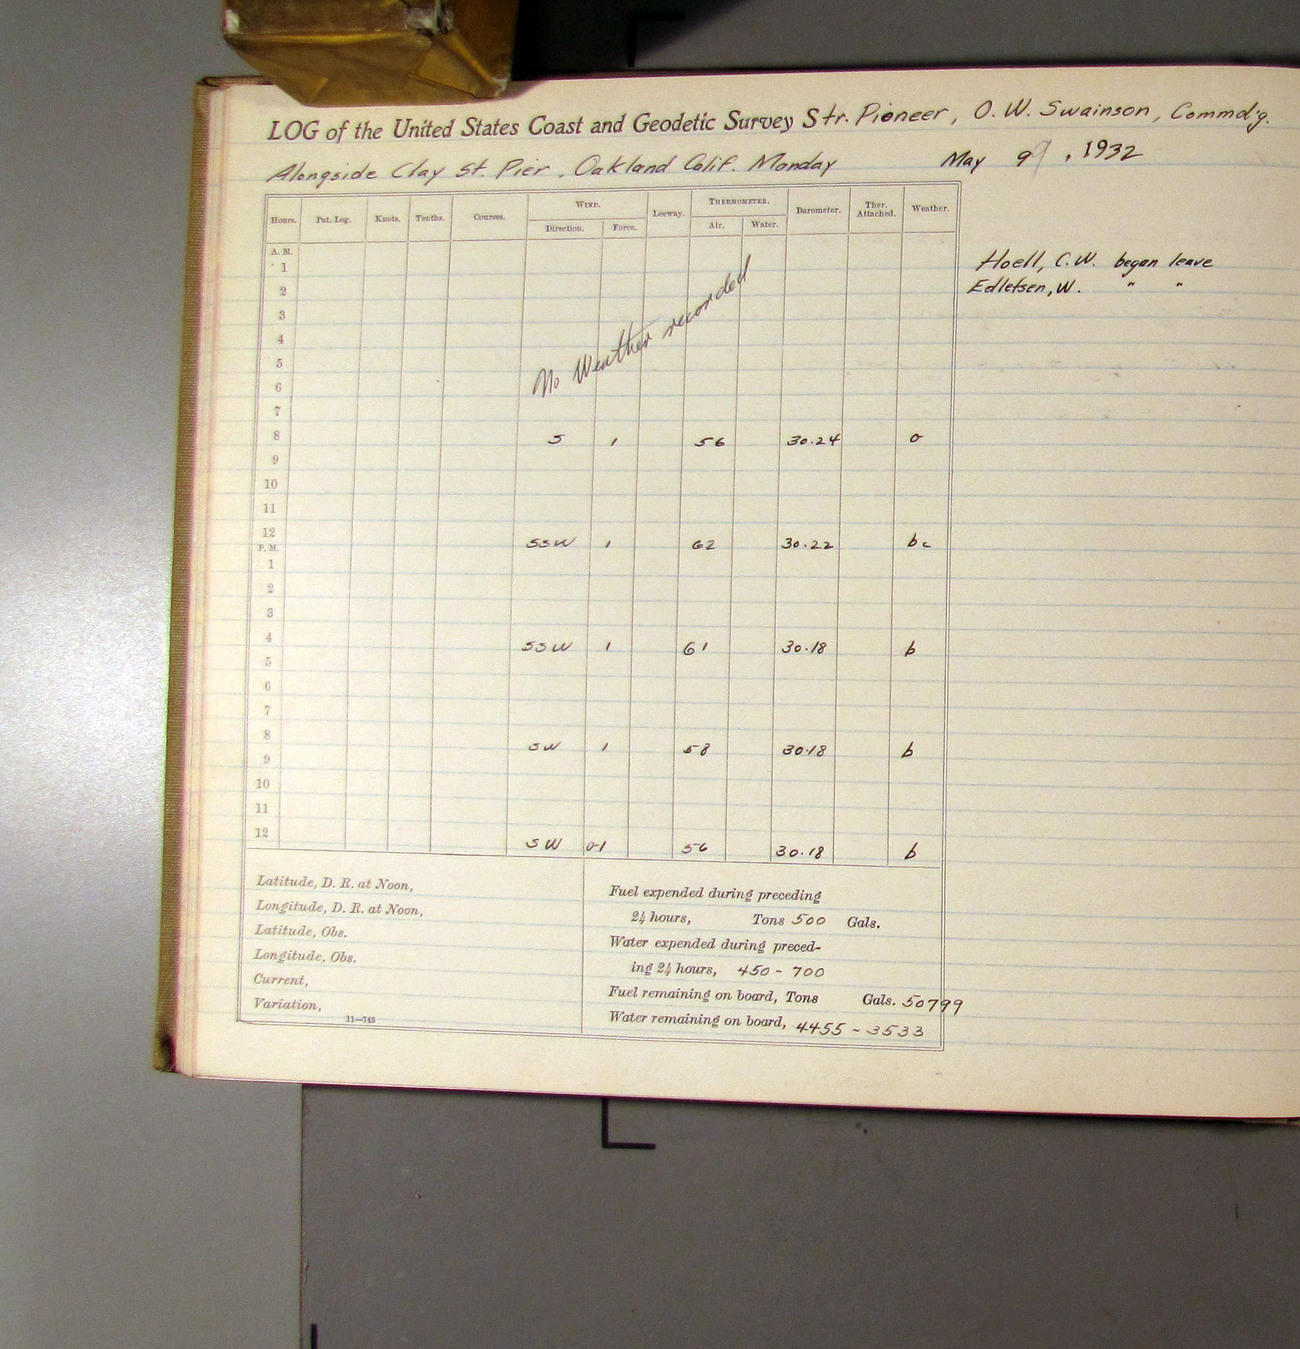 LOG of the United States Coast and Geodetic Survey Str. Pioneer, O. W. Swainson, Commd'g.
Alongside Clay St. Pier, Oakland Calif. Monday May 9, 1932
Hours. Pat. Log. Knots. Tenths. Courses. WIND. Leeway. THERMOMETER. Barometer. Ther. Attached. Weather.
Direction. Force. Air. Water.
A. M.
1 Hoell, C.W. began leave
2 Edlefsen, W. " "
3
4
5
6
No Weather recorded
7
8 S 1 56 30.24 o
9
10
11
12 SSW 1 62 30.22 bc
P. M.
1
2
3
4 SSW 1 61 30.18 b
5
6
7
8 SW 1 58 30.18 b
9
10
11
12 SW 0-1 56 30.18 b
Latitude, D. R. at Noon,
Longitude, D. R. at Noon,
Latitude, Obs.
Longitude, Obs.
Current,
Variation,
11—743
Fuel expended during preceding
24 hours, Tons 500 Gals.
Water expended during preced-
ing 24 hours, 450 - 700
Fuel remaining on board, Tons Gals. 50799
Water remaining on board, 4455 - 3533